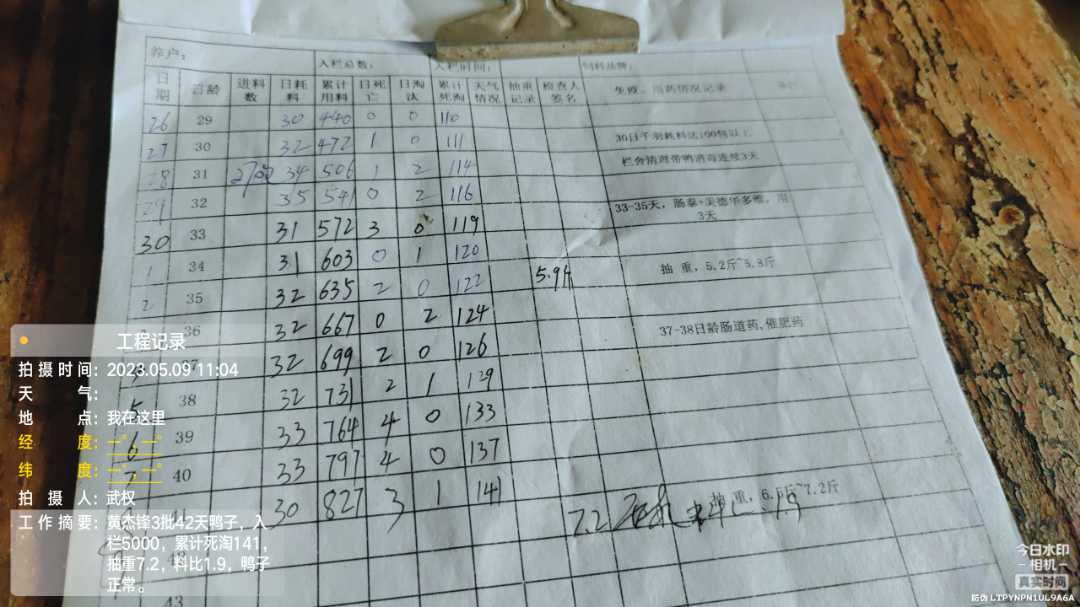 养户： 入栏总数： 入栏时间： 饲料品牌：
日期 日龄 进料数 日耗料 累计用料 日死亡 日淘汰 累计死淘 天气情况 抽重记录 检查人签名 免疫、用药情况记录
26 29 30 440 0 0 110
27 30 32 472 1 0 111 30日子
28 31 34 506 1 2 114 栏舍清理带鸭消毒连续3天
29 32 35 541 0 2 116
30 33 31 572 3 0 119 33-35天，肠泰+美德华多维，用3天
1 34 31 603 0 1 120
2 35 32 635 2 0 122 5.9斤 抽重，5.2斤~5.3斤
36 32 667 0 2 124
37 32 699 2 0 126 37-38日龄肠道药、催肥药
5 38 32 731 2 1 129
6 39 33 764 4 0 133
7 40 33 797 4 0 137
41 30 827 3 1 141 7.2 抽重，6.5斤~7.2斤
43
工程记录
拍摄时间：2023.05.09 11:04
天气：
地点：我在这里
经度：--°--°
纬度：--°--°
拍摄人：武权
工作摘要：黄杰锋3批42天鸭子，入
栏5000，累计死淘141，
抽重7.2，料比1.9，鸭子
正常。
今日水印
-相机-
真实时间
防伪 LTPYNPN1UL9A6A